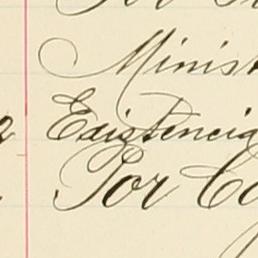 Minist
Existencia
Por Ca